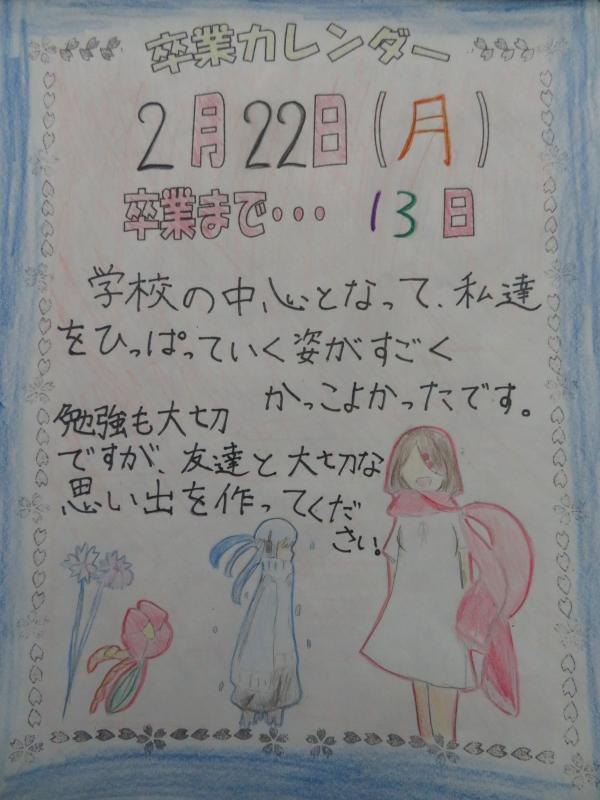 卒業カレンダー
2月22日(月)
卒業まで・・・ 13日
学校の中心となって、私達
をひっぱっていく姿がすごく
かっこよかったです。
勉強も大切
ですが、友達と大切な
思い出を作ってくだ
さい。